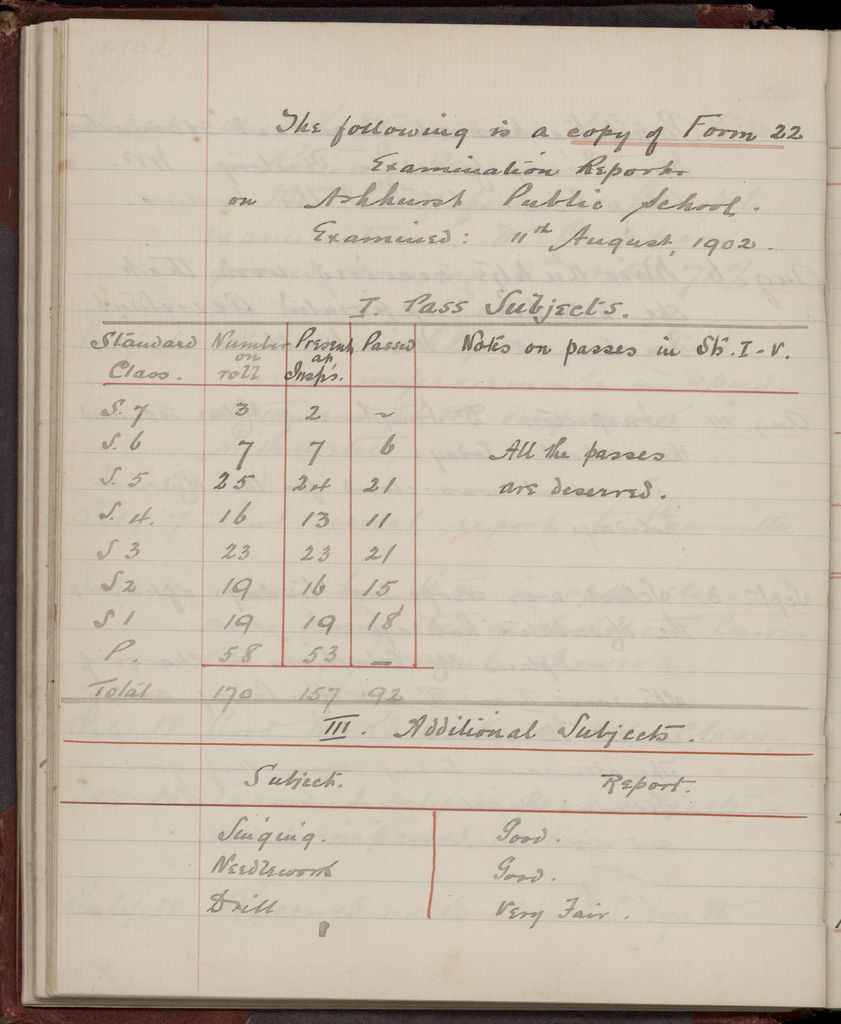 The following is a copy of Form 22
Examination Report
on Ashhurst Public School.
Examined: 11th August, 1902.
I. Pass Subjects.
Standard Class. Number on roll Present at Insp'n. Passed Notes on passes in Sts. I-V.
S. 7 3 2 ~
S. 6 7 7 6 All the passes
S. 5 25 24 21 are deserved.
S. 4. 16 13 11
S 3 23 23 21
S 2 19 16 15
S 1 19 19 18
P. 58 53 —
Total 170 157 92
III. Additional Subjects.
Subject. Report.
Singing. Good.
Needlework Good.
Drill Very Fair.